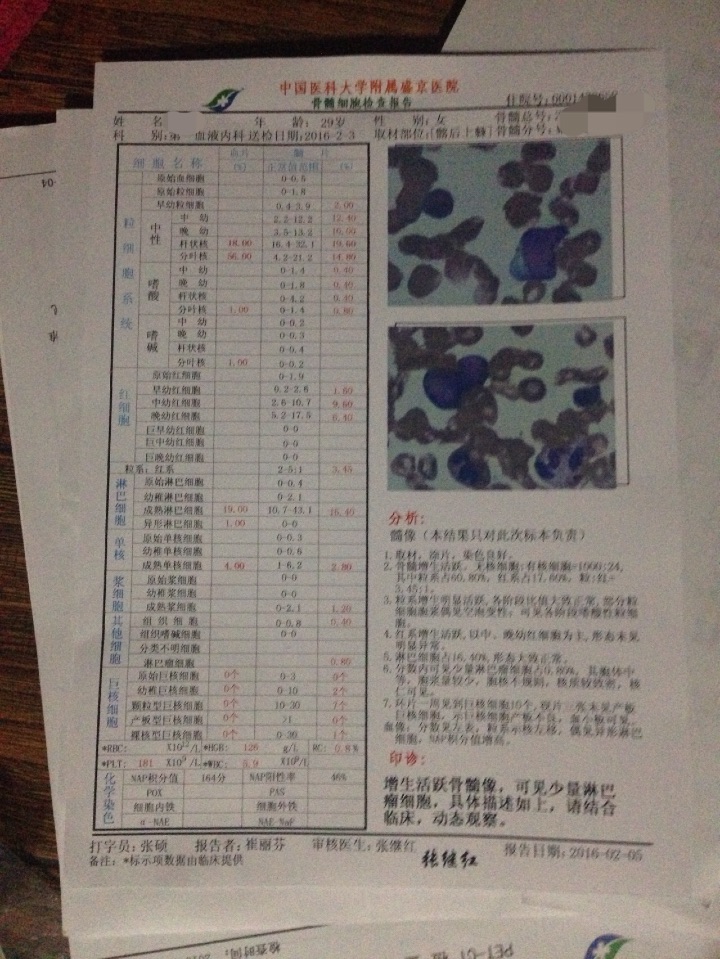 中国医科大学附属盛京医院
骨髓细胞检查报告
住院号:
姓 名 年 龄: 29岁 性 别: 女 骨髓总号:
科 别: 血液内科 送检日期:2016-2-3 取材部位:[髂后上棘] 骨髓分号:
细胞名称 血片 髓 片
(%) 正常值范围 (%)
粒细胞系统
原始血细胞 0-0.6
原始粒细胞 0-1.8
早幼粒细胞 0.4-3.9 2.00
中性
中 幼 2.2-12.2 12.40
晚 幼 3.5-13.2
杆状核 18.00 16.4-32.1 19.60
分叶核 56.00 4.2-21.2 14.80
嗜酸
中 幼 0-1.4 0.40
晚 幼 0-1.8 0.40
杆状核 0-4.2 0.40
分叶核 1.00 0-1.4 0.80
嗜碱
中 幼 0-0.2
晚 幼 0-0.3
杆状核 0-0.4
分叶核 1.00 0-0.2
红细胞
原始红细胞 0-1.9
早幼红细胞 0.2-2.6 1.60
中幼红细胞 2.6-10.7 9.60
晚幼红细胞 5.2-17.5 6.40
巨早幼红细胞 0-0
巨中幼红细胞 0-0
巨晚幼红细胞 0-0
粒系:红系 2-5:1 3.45
淋巴细胞
原始淋巴细胞 0-0.4
幼稚淋巴细胞 0-2.1
成熟淋巴细胞 19.00 10.7-43.1 16.40
异形淋巴细胞 1.00 0-0
单核
原始单核细胞 0-0.3
幼稚单核细胞 0-0.6
成熟单核细胞 4.00 1-6.2 2.80
浆细胞
原始浆细胞 0-0
幼稚浆细胞 0-0
成熟浆细胞 0-2.1 1.20
其他细胞
组 织 细 胞 0-0.8 0.40
组织嗜碱细胞 0-0
分类不明细胞
淋巴瘤细胞 0.80
巨核细胞
原始巨核细胞 0个 0-3 0个
幼稚巨核细胞 0个 0-10 2个
颗粒型巨核细胞 0个 10-30 7个
产板型巨核细胞 0个 >1 0个
裸核型巨核细胞 0个 0-30 1个
*RBC: X10¹²/L *HGB: 126 g/L RC: 0.8%
*PLT: 181 X10⁹/L *WBC: 5.9 X10⁹/L
化学染色
NAP积分值 164分 NAP阳性率 46%
POX PAS
细胞内铁 细胞外铁
α-NAE NAE-NaF
分析:
髓像(本结果只对此次标本负责)
1. 取材, 涂片, 染色良好。
2. 骨髓增生活跃。无核细胞:有核细胞=1000:24,
其中粒系占60.80%, 红系占17.60%, 粒:红=
3.45:1。
3. 粒系增生明显活跃, 各阶段比值大致正常, 部分粒
细胞胞浆偶见空泡变性; 可见各阶段嗜酸性粒细
胞。
4. 红系增生活跃, 以中、晚幼红细胞为主, 形态未见
明显异常。
5. 淋巴细胞占16.40%, 形态大致正常。
6. 分数内可见少量淋巴瘤细胞占0.80%, 其胞体中
等, 胞浆量较少, 胞核不规则, 核质较致密, 核
仁可见。
7. 环片一周见到巨核细胞10个, 未见产板
巨核细胞, 示巨核细胞产板不良, 血小板可见。
血像: 分数见左表; 粒系示核左移, 偶见异形淋巴
细胞, NAP积分值增高。
印诊:
增生活跃骨髓像, 可见少量淋巴
瘤细胞, 具体描述如上, 请结合
临床, 动态观察。
打字员: 张硕 报告者: 崔丽芬 审核医生: 张继红 报告日期: 2016-02-05
备注: *标示项数据由临床提供
张继红
检查时间:
PET-CT